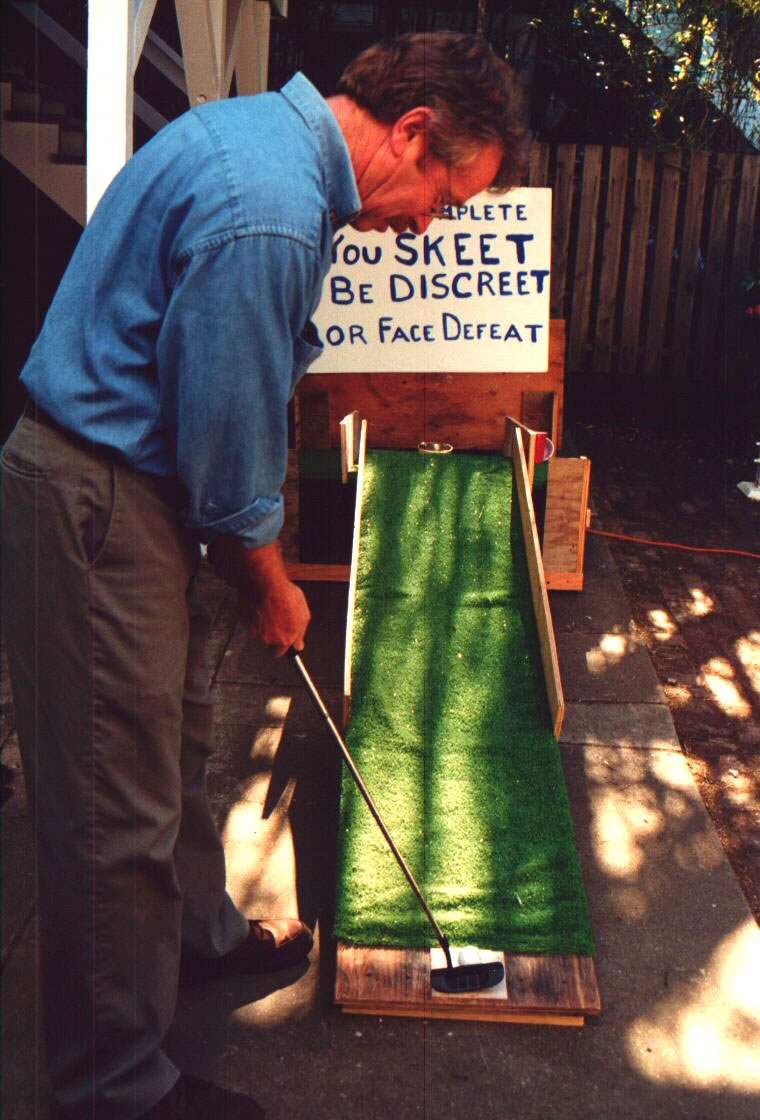 YOU SKEET
BE DISCREET
OR FACE DEFEAT